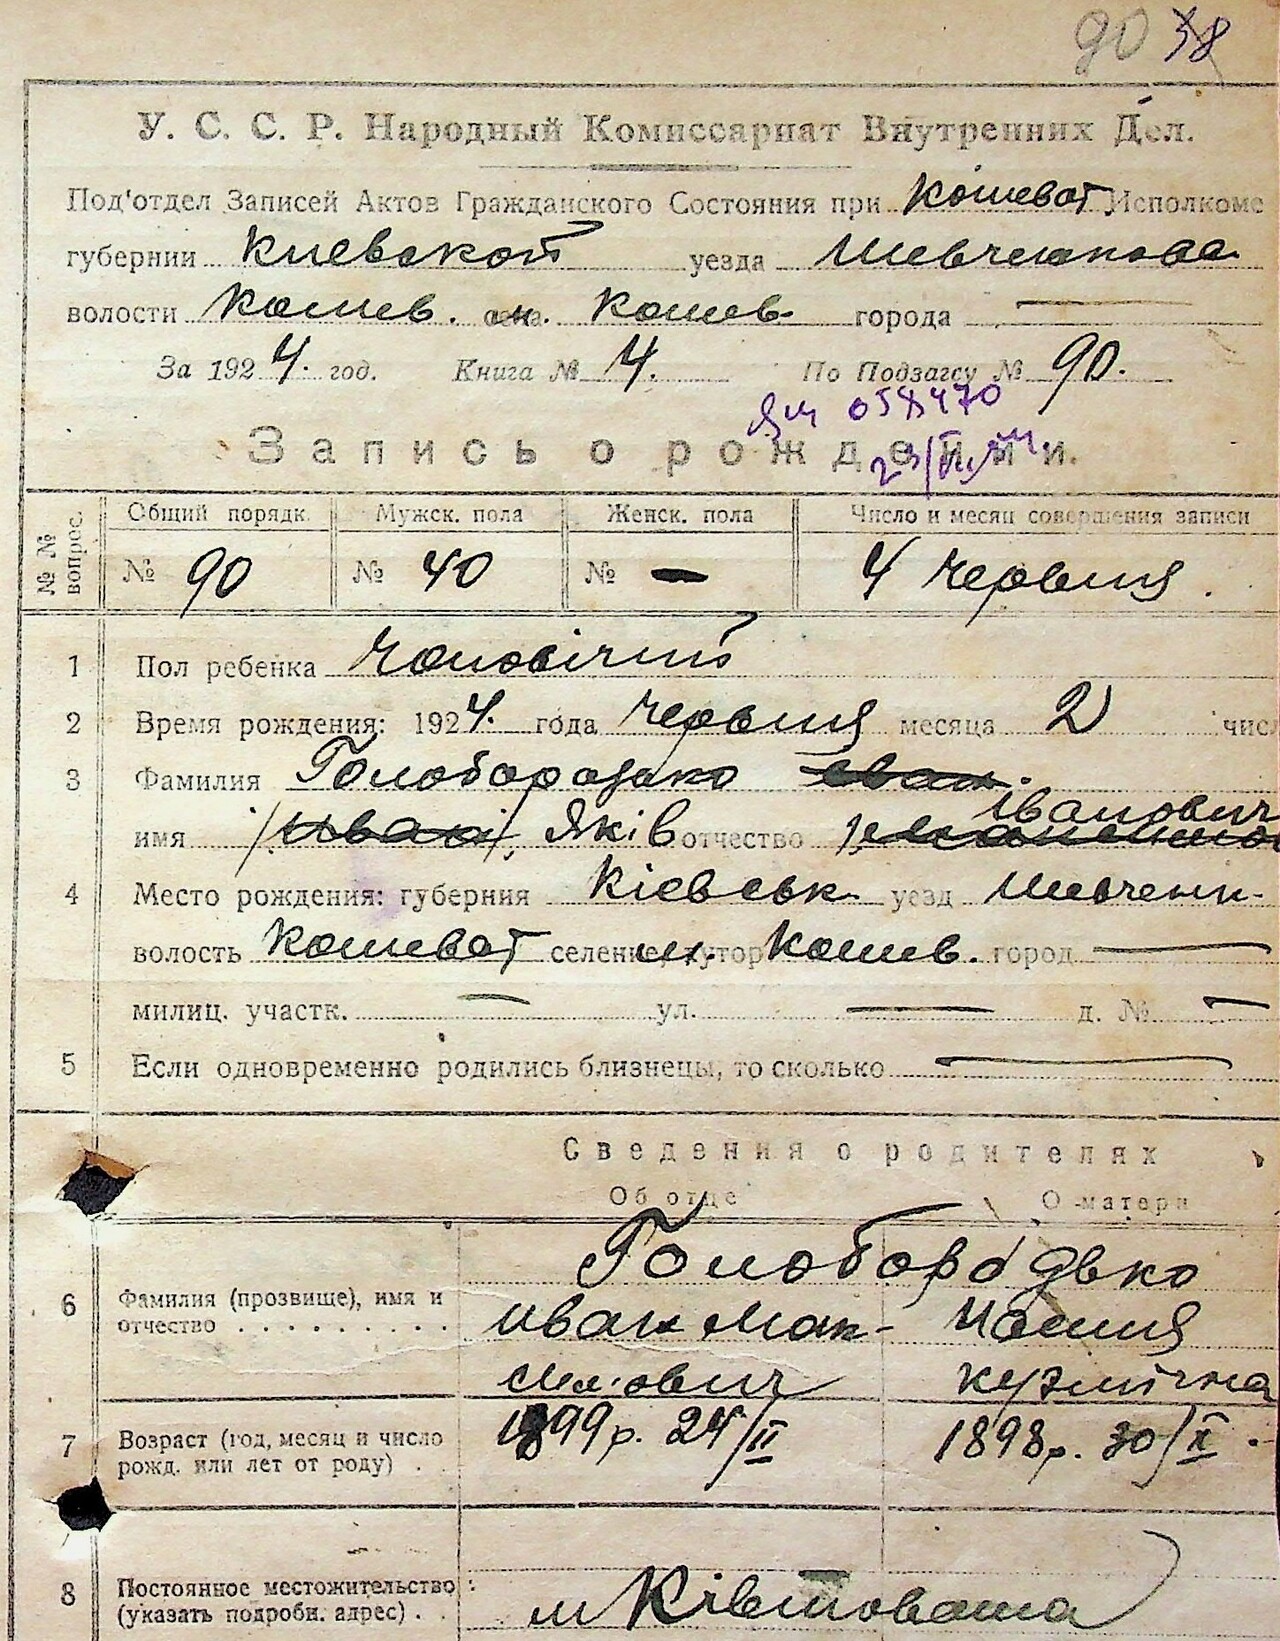 90 38
У. С. С. Р. Народный Комиссариат Внутренних Дел.
Под'отдел Записей Актов Гражданского Состояния при Кошеват. Исполкоме
губернии Киевской уезда Шевченкова
волости Кошев. м. Кошев. города —
За 1924. год. Книга № 4. По Подзагсу № 90.
058470
Запись о рождении.
№ № вопрос. Общий порядк. Мужск. пола Женск. пола Число и месяц совершения записи
№ 90 № 40 № — 4 червня.
1 Пол ребенка чоловічий
2 Время рождения: 1924. года червня месяца 2 числ
3 Фамилия Голобородько Иван.
Іванович
имя /Иван/, Яків отчество
4 Место рождения: губерния Кієвськ. уезд Шевченк-
волость Кошеват селение, м. хутор Кошев. город —
милиц. участк. — ул. — д. № —
5 Если одновременно родились близнецы, то сколько —
Сведения о родителях
Об отце О матери
Голобородько
6 Фамилия (прозвище), имя и отчество Иван Мак-
симович Кузмічна
7 Возраст (год, месяц и число рожд. или лет от роду) . 1899р. 24/II 1898р. 30/X.
8 Постоянное местожительство (указать подробн. адрес) . . м